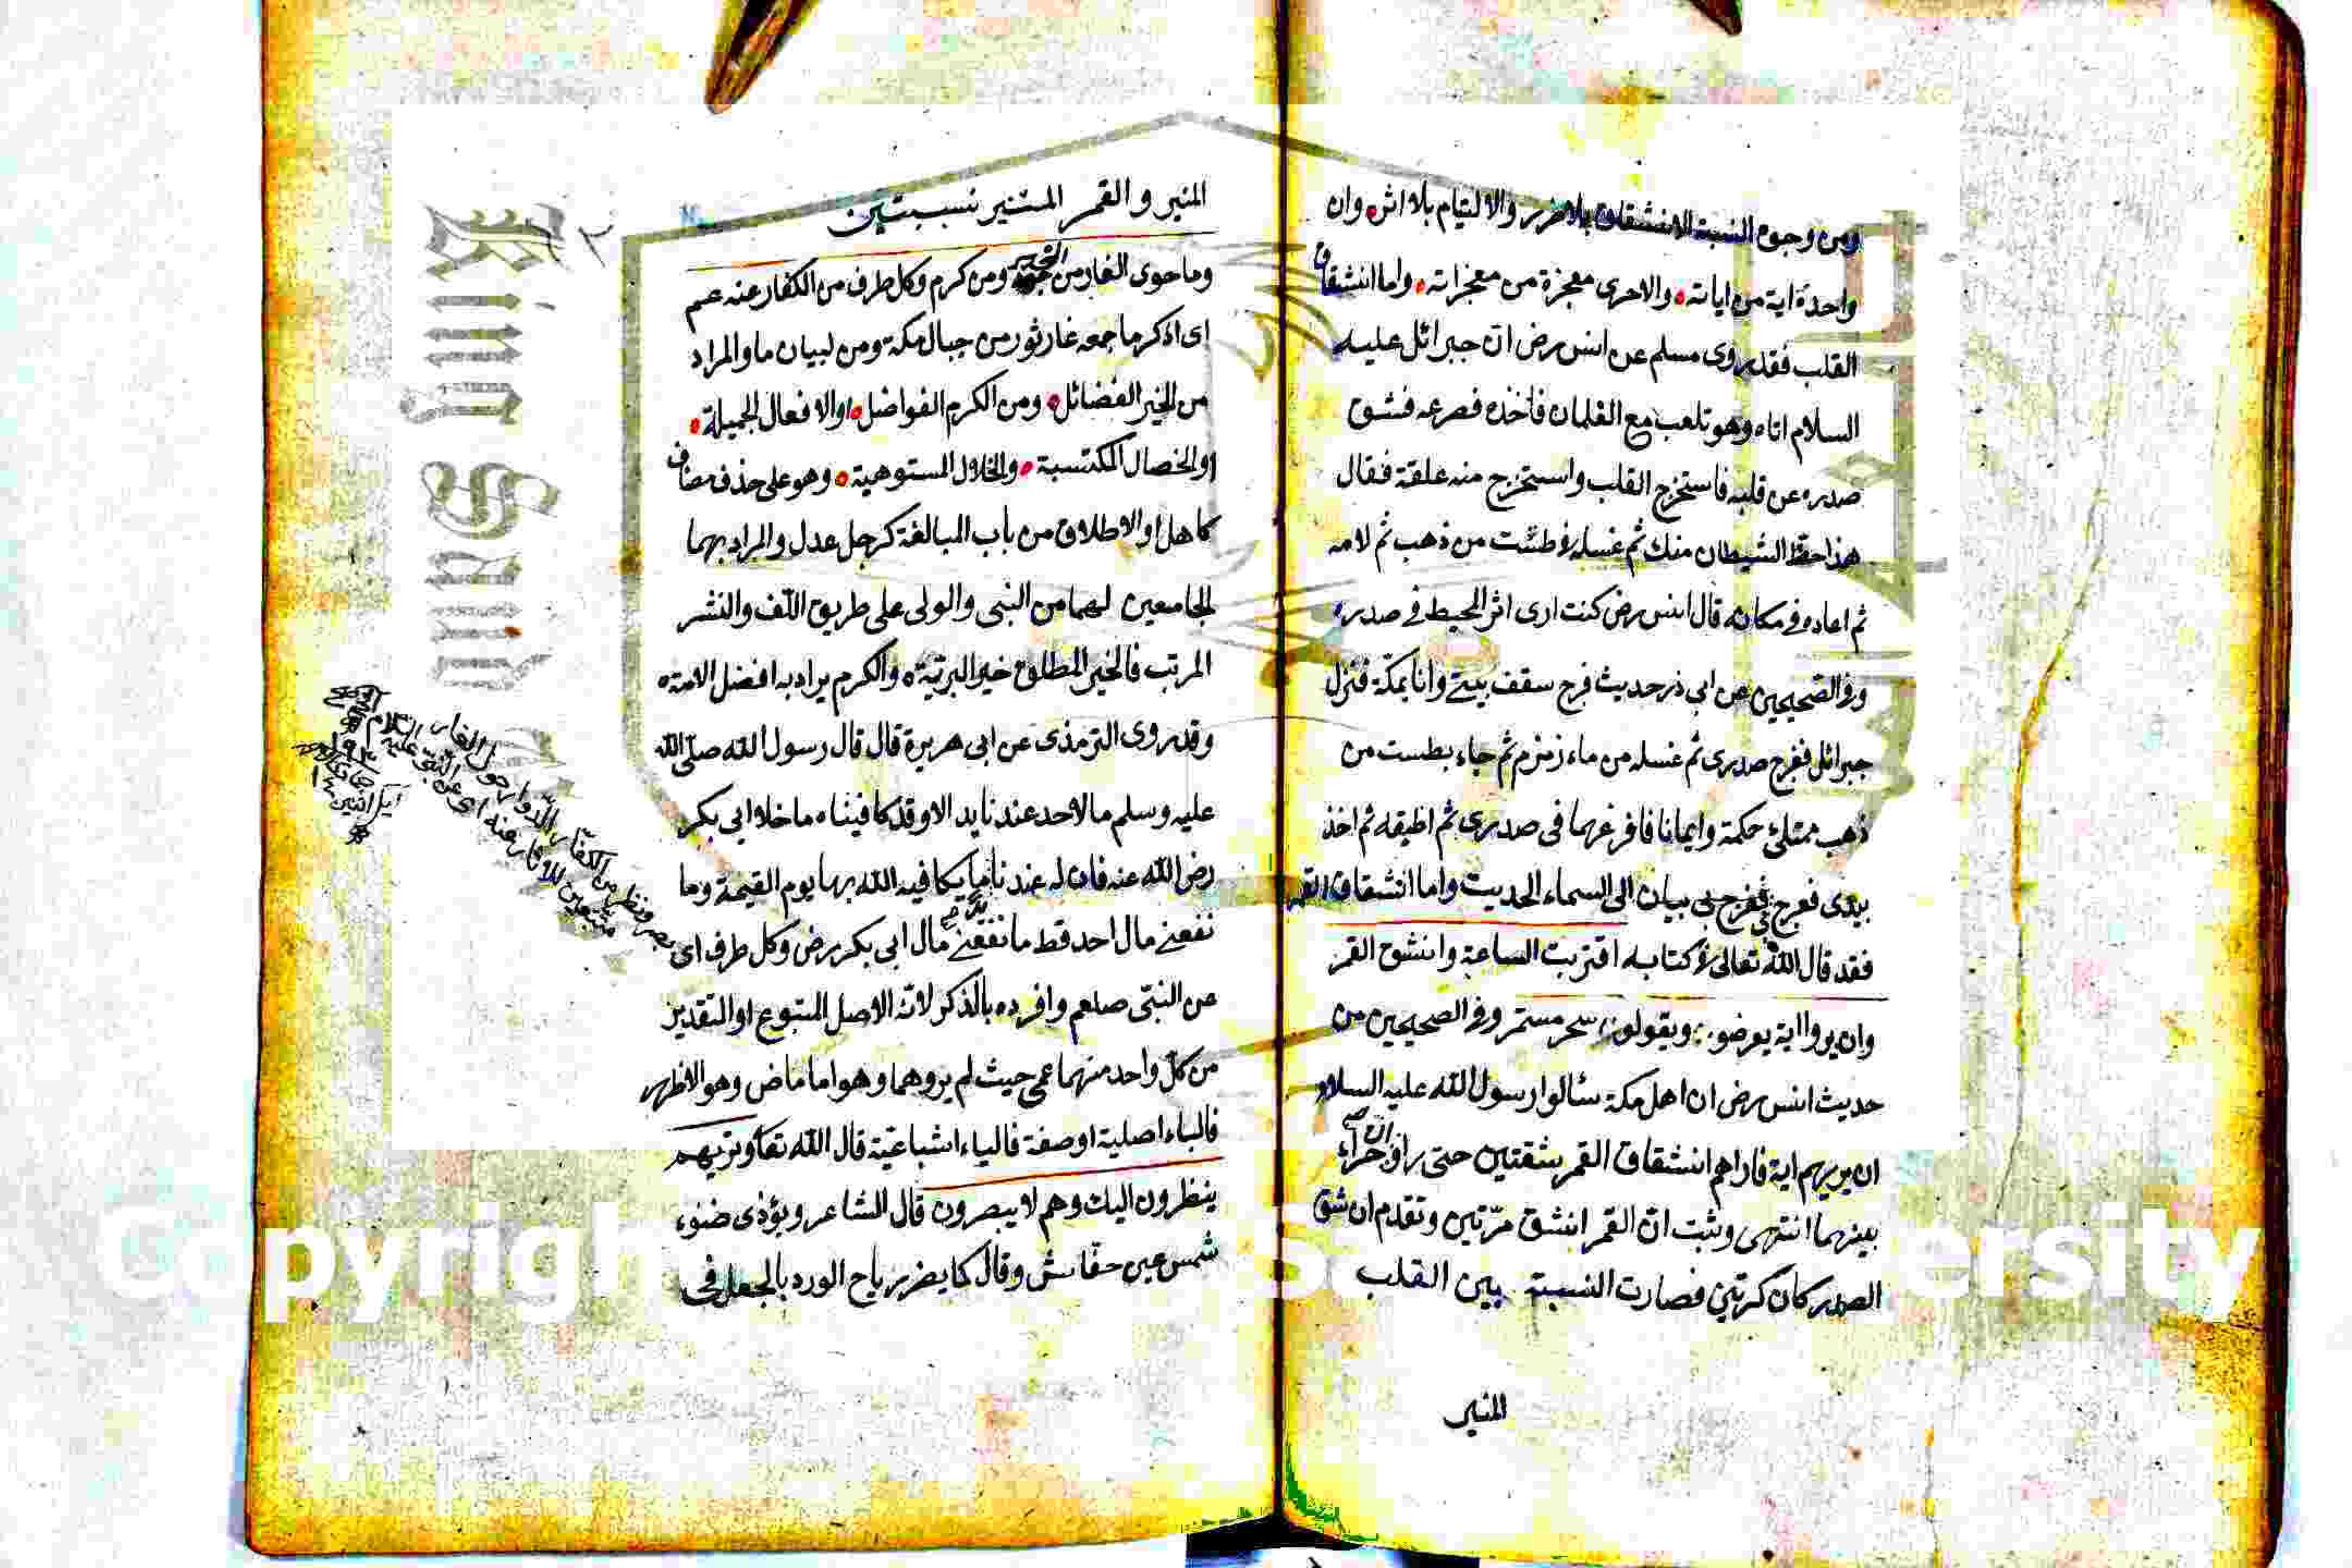 ومن وجوه النسبة الانشقاق بلا ضرر والالتيام بلا اثر وان
واحدة اية من اياته والاخرى معجزة من معجزاته واما انشقاق
القلب فقد روى مسلم عن انس رض ان جبرائل عليه
السلام اتاه وهو تلعب مع الغلمان فاخذه فصرعه فشق
صدره عن قلبه فاستخرج القلب واستخرج منه علقة فقال
هذا حظ الشيطان منك ثم غسله في طشت من ذهب ثم لامه
ثم اعاده في مكانه قال انس رض كنت ارى اثر المحيط في صدره
وفي الصحيحين عن ابى ذر حديث فرج سقف بيتي وانا بمكة فنزل
جبرائل ففرج صدرى ثم غسله من ماء زمزم ثم جاء بطست من
ذهب ممتلئ حكمة وايمانا فافرغها فى صدرى ثم اطبقه ثم اخذ
بيدى فعرج بى الى السماء الحديث واما انشقاق القمر
فقد قال الله تعالى في كتابه اقتربت الساعة وانشق القمر
وان يروا اية يعرضو ويقولو سحر مستمر وفي الصحيحين من
حديث انس رض ان اهل مكة سئالوا رسول الله عليه السلام
ان يريهم اية فاراهم انشقاق القمر بشقتين حتى راوا حراء
بينهما انتهى وثبت ان القمر انشق مرّتين وتقدم ان شق
الصدر كان كرتين فصارت النسبة بين القلب
المنير
المنير والقمر المستنير نسبتين
وما حوى الغار من الخير ومن كرم وكل طرف من الكفار عنه عم
اى اذكر ما جمعه غار ثور من جبال مكة ومن لبيان ما والمراد
من الخير الفضائل ومن الكرم الفواضل او الافعال الجميلة
او الخصال المكتسبة والخلال المستوهبة وهو على حذف مضاف
كاهل او الاطلاق من باب المبالغة كرجل عدل والمراد بهما
الجامعين لهما من النبى والولى على طريق اللف والنشر
المرتب فالخير المطلق خير البرية والكرم يراد به افضل الامة
وقد روى الترمذى عن ابى هريرة قال قال رسول الله صلى الله
عليه وسلم ما لاحد عندنا يد الا وقد كافيناه ما خلا ابى بكر
رض الله عنه فان له عندنا يدا يكافيه الله بها يوم القيمة وما
نفعنى مال احد قط ما نفعنى مال ابى بكر رض وكل طرف اى
عن النبى صلعم وافرده بالذكر لانه الاصل المتبوع او التقدير
من كل واحد منهما عمى حيث لم يروهما وهو اما ماض وهو الاظهر
فالياء اصلية او صفة فالياء اشباعية قال الله تعا وتريهم
ينظرون اليك وهم لا يبصرون قال الشاعر ويؤذى ضوء
شمس عين خفاش وقال كما يضر رياح الورد بالجعل فى
بصر ونظر من الكفار الدوار حول الغار
متتبعين للاثار عنه اى عن النبى عليه السلام
King Saud
Copyright © King Saud University